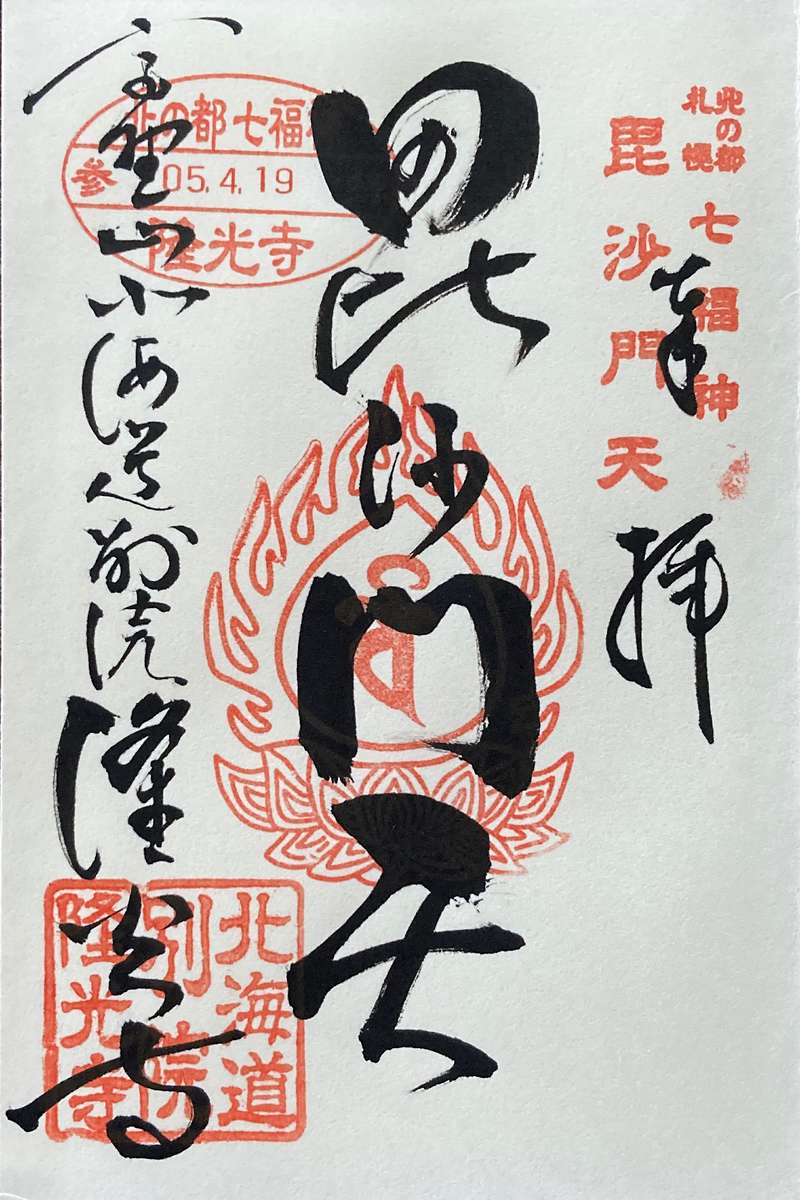 北の都
札幌
七福神
毘沙門天
奉
拝
毘沙門天
北の都七福
参 05.4.19
隆光寺
高野山北海道別院隆光寺
北海道
別院
隆光寺